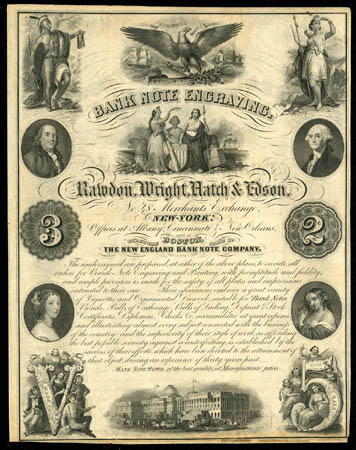 BANK NOTE ENGRAVING.
Rawdon, Wright, Hatch & Edson,
No. 48 Merchants Exchange,
NEW-YORK:
Offices at Albany, Cincinnati & New Orleans,
BOSTON,
THE NEW ENGLAND BANK NOTE COMPANY.
3
2
The undersigned are prepared, at either of the above places, to execute all
orders for Bank Note Engraving and Printing, with promptitude and fidelity,
and ample provision is made for the safety of all plates and impressions
entrusted to their care. Their and very great variety
Vignettes and Ornamental suitable for Bank Notes
Bonds, Bills of Exchange, Bills of Lading, Deposit & Stock
Certificates, Diplomas, Checks &c. accumulated at great expense
and illustrating almost every subject connected with the business of
the country: and the superiority of their style of work, as affording
the best possible security against counterfeiting, is established by the
success of their efforts, which have been devoted to the attainment of
that object, during an experience of thirty years past.
BANK NOTE PAPER, of the best quality, at Manufacturers prices.